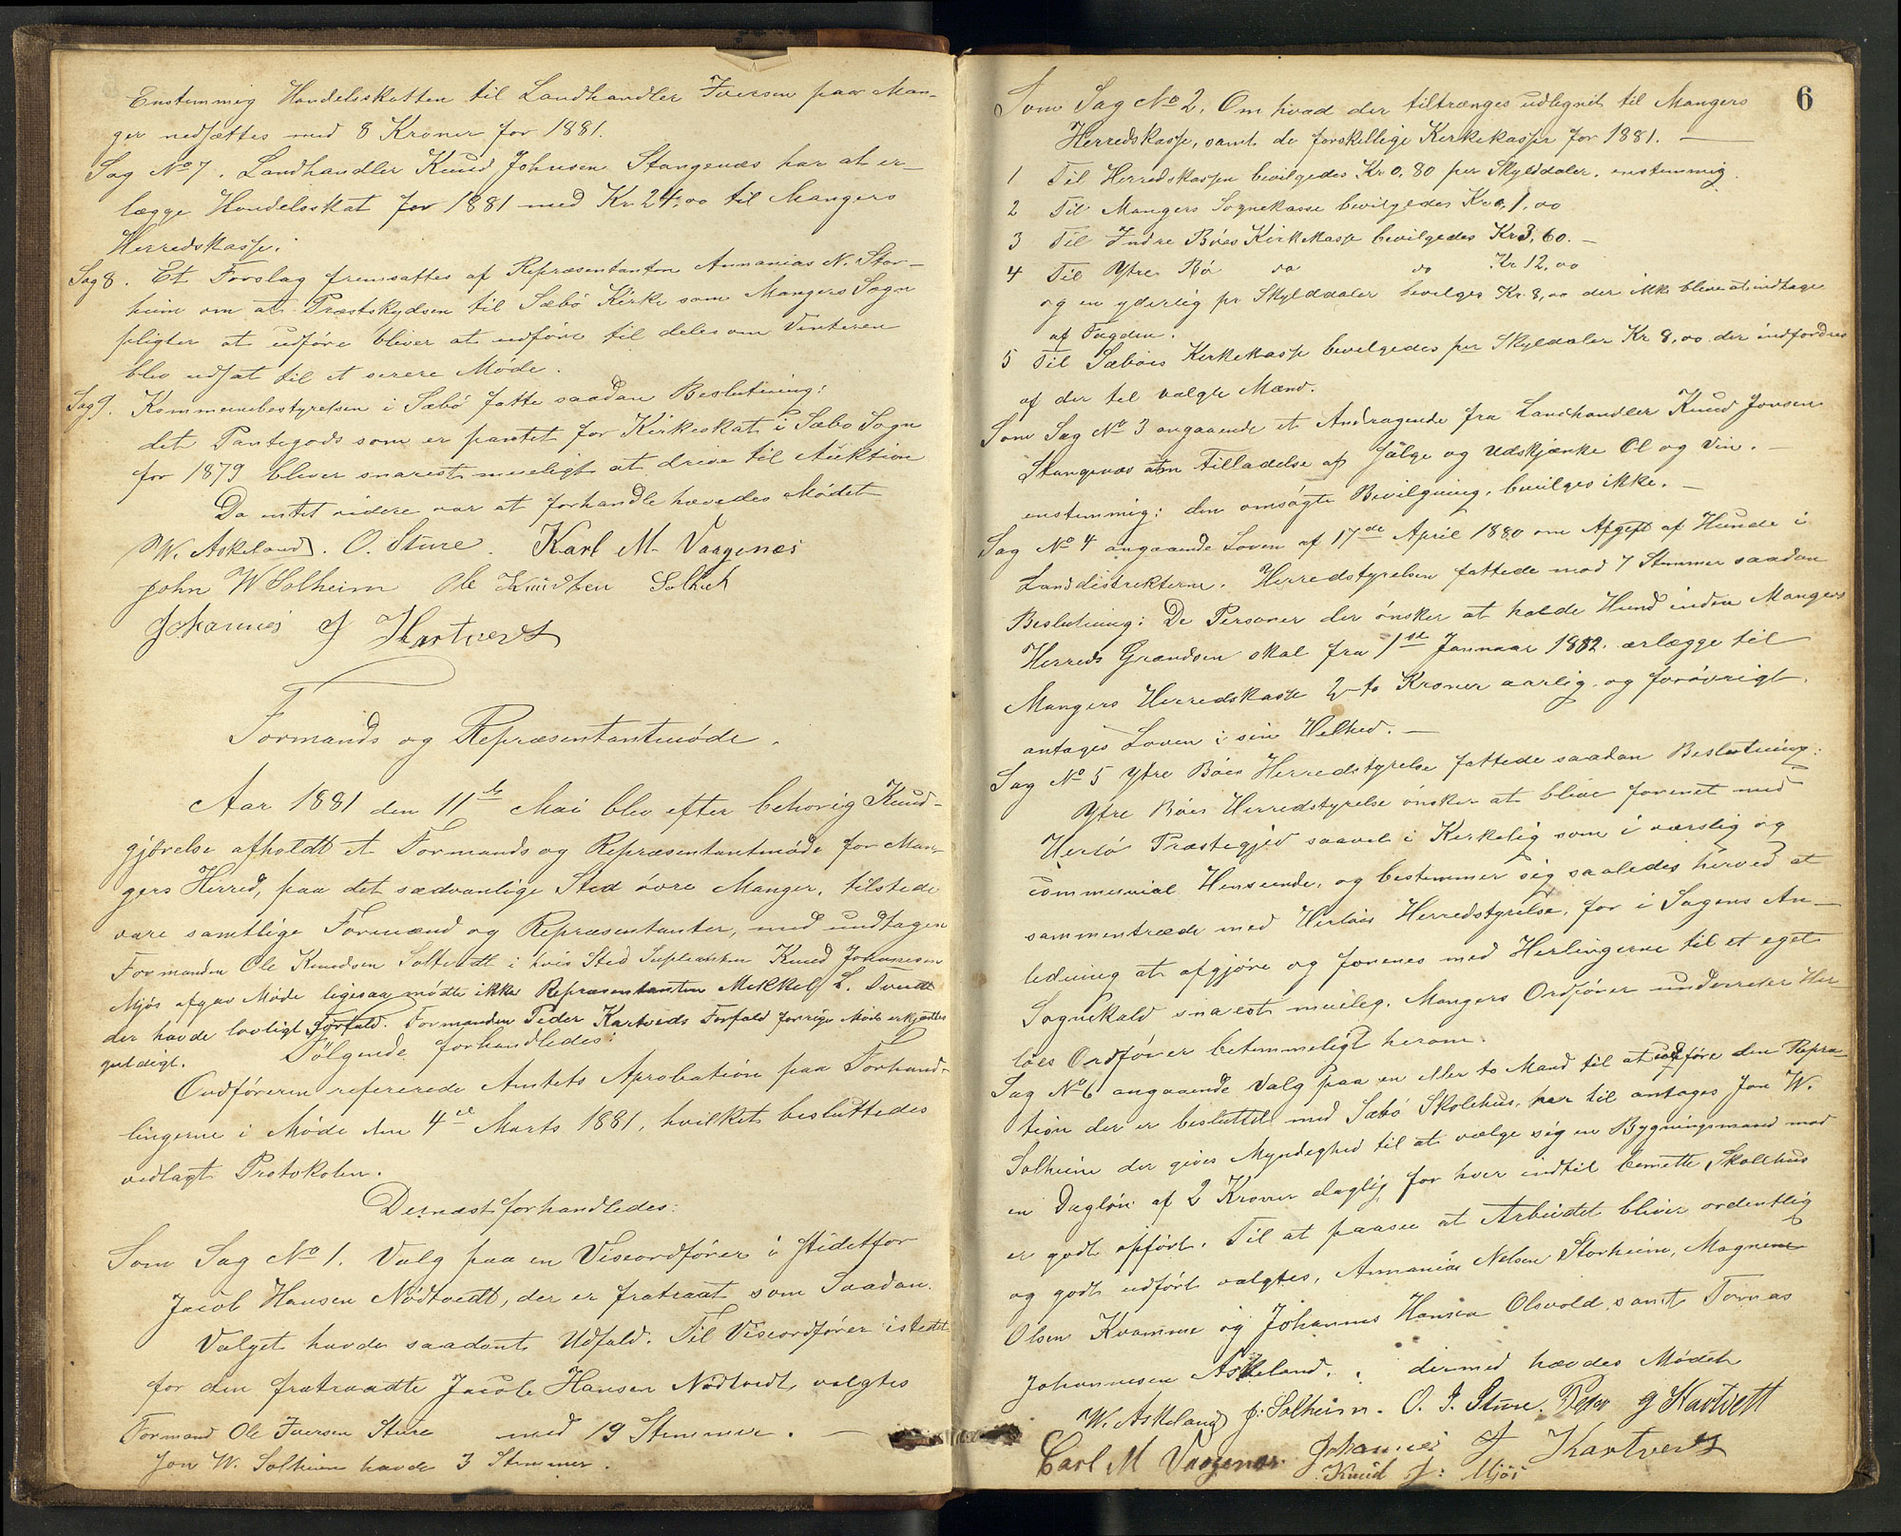 Enstemmig Handelsskatten til Landhandler Iversen paa Man-
ger nedsættes med 8 Kroner for 1881.
Sag No 7. Landhandler Knud Johnsen Stangenæs har at er-
lægge Handelsskat for 1881 med Kr 24,00 til Mangers
Herredskasse.
Sag 8. Et Forslag fremsattes af Repræsentanten Annanias N. Stor-
heim om at Præstskydsen til Sæbö Kirke som Mangers Sogn
pligter at udföre bliver at udföre til deles om Vinteren
blev udsat til et senere Möde.
Sag 9. Kommunebestyrelsen i Sæbö fatte saadan Beslutning:
det Pantegods som er pantet for Kirkeskat i Sæbo Sogn
for 1879 bliver snarest mueligt at drive til Auktion
Da intet videre var at forhandle hævedes Mödet
W. Askeland. O. Sture. Karl M. Vaagenes
John W Solheim Ole Knudsen
Johannes J Hartvedt
Formands og Repræsentantmöde.
Aar 1881 den 11te Mai blev efter behörig Kund-
gjörelse afholdt et Formands og Repræsentantmöde for Man-
gers Herred, paa det sædvanlige Sted övre Manger, tilstede
vare samtlige Formænd og Repræsentanter, med undtagen
Formanden Ole Knudsen Soltvedt i hvis Sted Suplianten Knud Johannesen
Mjös afgav Möde ligesaa mödte ikke Repræsentanten Mikkel L.
der havde lovligt Forfald. Formanden Peder Hartveds Forfald forrige Möde erkjendtes
gyldigt. Fölgende forhandledes:
Ordföreren refererede Amtets Aprobation paa Forhand-
lingerne i Möde den 4de Marts 1881, hvilket besluttedes
vedlagt Protokolen.
Dernæst forhandledes:
Som Sag No 1. Valg paa en Viseordförer i Stedetfor
Jacob Hansen Nödtvedt, der er fratraat som Saadan.
Valget havde saadant Udfald. Til Viseordförer istedet
for den fratraadte Jacob Hansen Nödtvedt valgtes
Formand Ole Iversen Sture med 19 Stemmer.
Jon W. Solheim havde 3 Stemmer.
6
Som Sag No 2. Om hvad der tiltrænges udlignet til Mangers
Herredskasse, samt de forskillige Kirkekasser for 1881.
1 Til Herredskassen bevilgedes Kr 0,80 per Skylddaler, enstemmig.
2 Til Mangers Sognekasse bevilgedes Kr 1,00
3 Til Indre Böes Kirkekasse bevilgedes Kr 3,60.
4 Til Ytre Bö do do Kr 12,00
og en yderlig pr Skylddaler bevilges Kr. 8,00 der ikke bliver at indtage
af Fugden.
5 Til Sæböes Kirkekasse bevilgedes per Skyldaler Kr 8,00 der indfordres
af der til valgte Mænd.
Som Sag No 3 angaaende et Andragende fra Landhandler Knud Jonsen
Stangenæs om Tilladelse af Sälge og Udskjænke Öl og Vin.
enstemmig: den omsögte Bevilgning, bevilges ikke.
Sag No 4 angaaende Loven af 17de April 1880 om Afgift af Hunde i
Landdistrikterne. Herredstyrelsen fattede mod 7 Stemmer saadan
Beslutning: De Personer der önsker at holde Hund inden Mangers
Herreds Grændser skal fra 1ste Januar 1882 erlægge til
Mangers Herredskasse 2 to Kroner aarlig og forövrigt
antages Loven i sin Helhed.
Sag No 5 Ytre Böes Herredstyrelse fattede saadan Beslutning:
Ytre Böes Herredstyrelse önsker at blive forenet med
Herlö Præstegjed saavel i Kirkelig som i værslig og
communial Henseende, og bestemmer sig saaledes herved at
sammentræde med Herlöes Herredstyrelse, for i Sagens An-
ledning at afgjöre og forenes med Herlingerne til et eget
Sognekald snarest muelig. Mangers Ordförer underretter Her-
löes Ordförer betimmeligt herom.
Sag No 6 angaaende Valg paa en eller to Mand til at udföre den Repra-
tion der er besluttet med Sæbö Skolehus, her til antages Jon W.
Solheim der gives Myndighed til at vælge sig en Bygningsmand mod
en Daglön af 2 Kroner daglig for hver indtil bemelte Skolehus
er godt opfört. Til at paasee at Arbeidet bliver ordentlig
og godt udfört valgtes, Annanias Nelsen Storheim, Magnus
Olsen Kvamme og Johannes Hansen Olsvold samt Tomas
Johannesen Askeland. dermed hævdes Mödet
W. Askeland J. Solheim. O. I. Sture. Peder J Hartvedt
Carl M Vaagenes. Johannes J Hartvedt
Knud J. Mjös